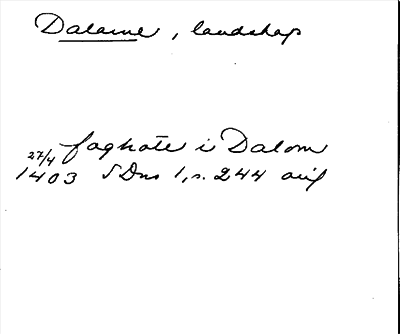 Dalarne, landskap
faghate i Dalom
27/4 1403 SDns 1, s. 244 avs